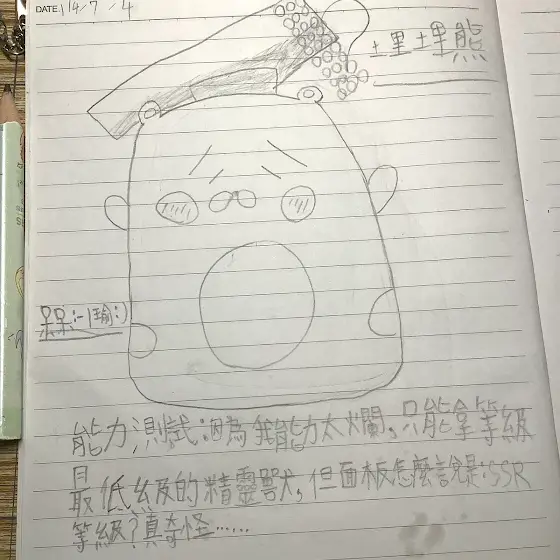 DATE. 14/7/4
土里土里熊
呆呆:-)瑜:)
能力測試:因為我能力太爛,只能拿等級
最低級的精靈獸,但面板怎麼說是:SSR
等級?真奇怪……